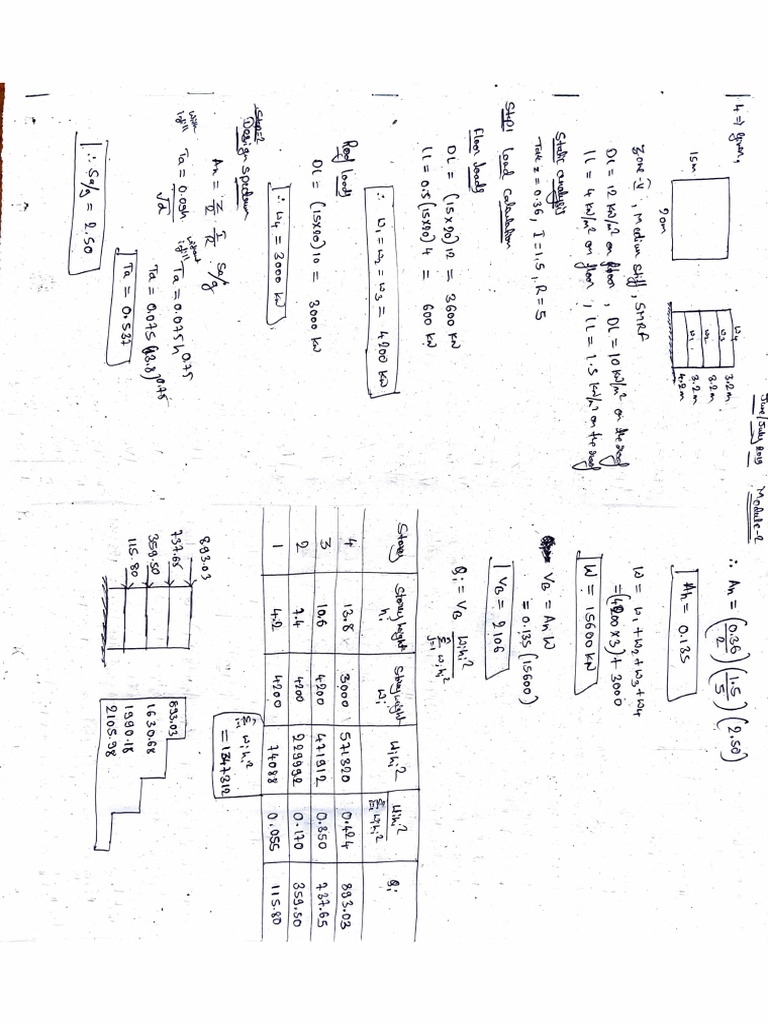 June/July 2019 Module-2
4 ⇒ given,
15m
20m
W4
W3
W2
W1
3.2m
3.2m
3.2m
4.2m
Zone V, Medium stiff, SMRF
DL = 12 kN/m² on floor, DL = 10 kN/m² on the roof
LL = 4 kN/m² on floor, LL = 1.5 kN/m² on the roof
Static analysis
Take z = 0.36, I = 1.5, R = 5
Step1 Load calculation
Floor loads
DL = (15×20) 12 = 3600 kN
LL = 0.5 (15×20) 4 = 600 kN
∴ W1 = W2 = W3 = 4200 kN
Roof loads
DL = (15×20) 10 = 3000 kN
∴ W4 = 3000 kN
Step-2
Design spectrum
An = Z/2 I/R Sa/g
with infill Ta = 0.09h/√d
without infill Ta = 0.075 h^0.75
Ta = 0.075 (13.8)^0.75
Ta = 0.537
∴ Sa/g = 2.50
∴ An = (0.36/2) (1.5/5) (2.50)
Ah = 0.135
W = W1 + W2 + W3 + W4
= (4200 × 3) + 3000
W = 15600 kN
VB = An W
= 0.135 (15600)
VB = 2106
Qi = VB Wihi²/Σj=1 wihi²
Storey | Storey height hi | Storey weight Wi | Wihi² | Wihi²/ΣWihi² | Qi
4 | 13.8 | 3000 | 571320 | 0.424 | 893.03
3 | 10.6 | 4200 | 471912 | 0.350 | 737.65
2 | 7.4 | 4200 | 229992 | 0.170 | 359.50
1 | 4.2 | 4200 | 74088 | 0.055 | 115.80
Σ Wihi²
= 1347312
893.03
737.65
359.50
115.80
893.03
1630.68
1990.18
2105.98